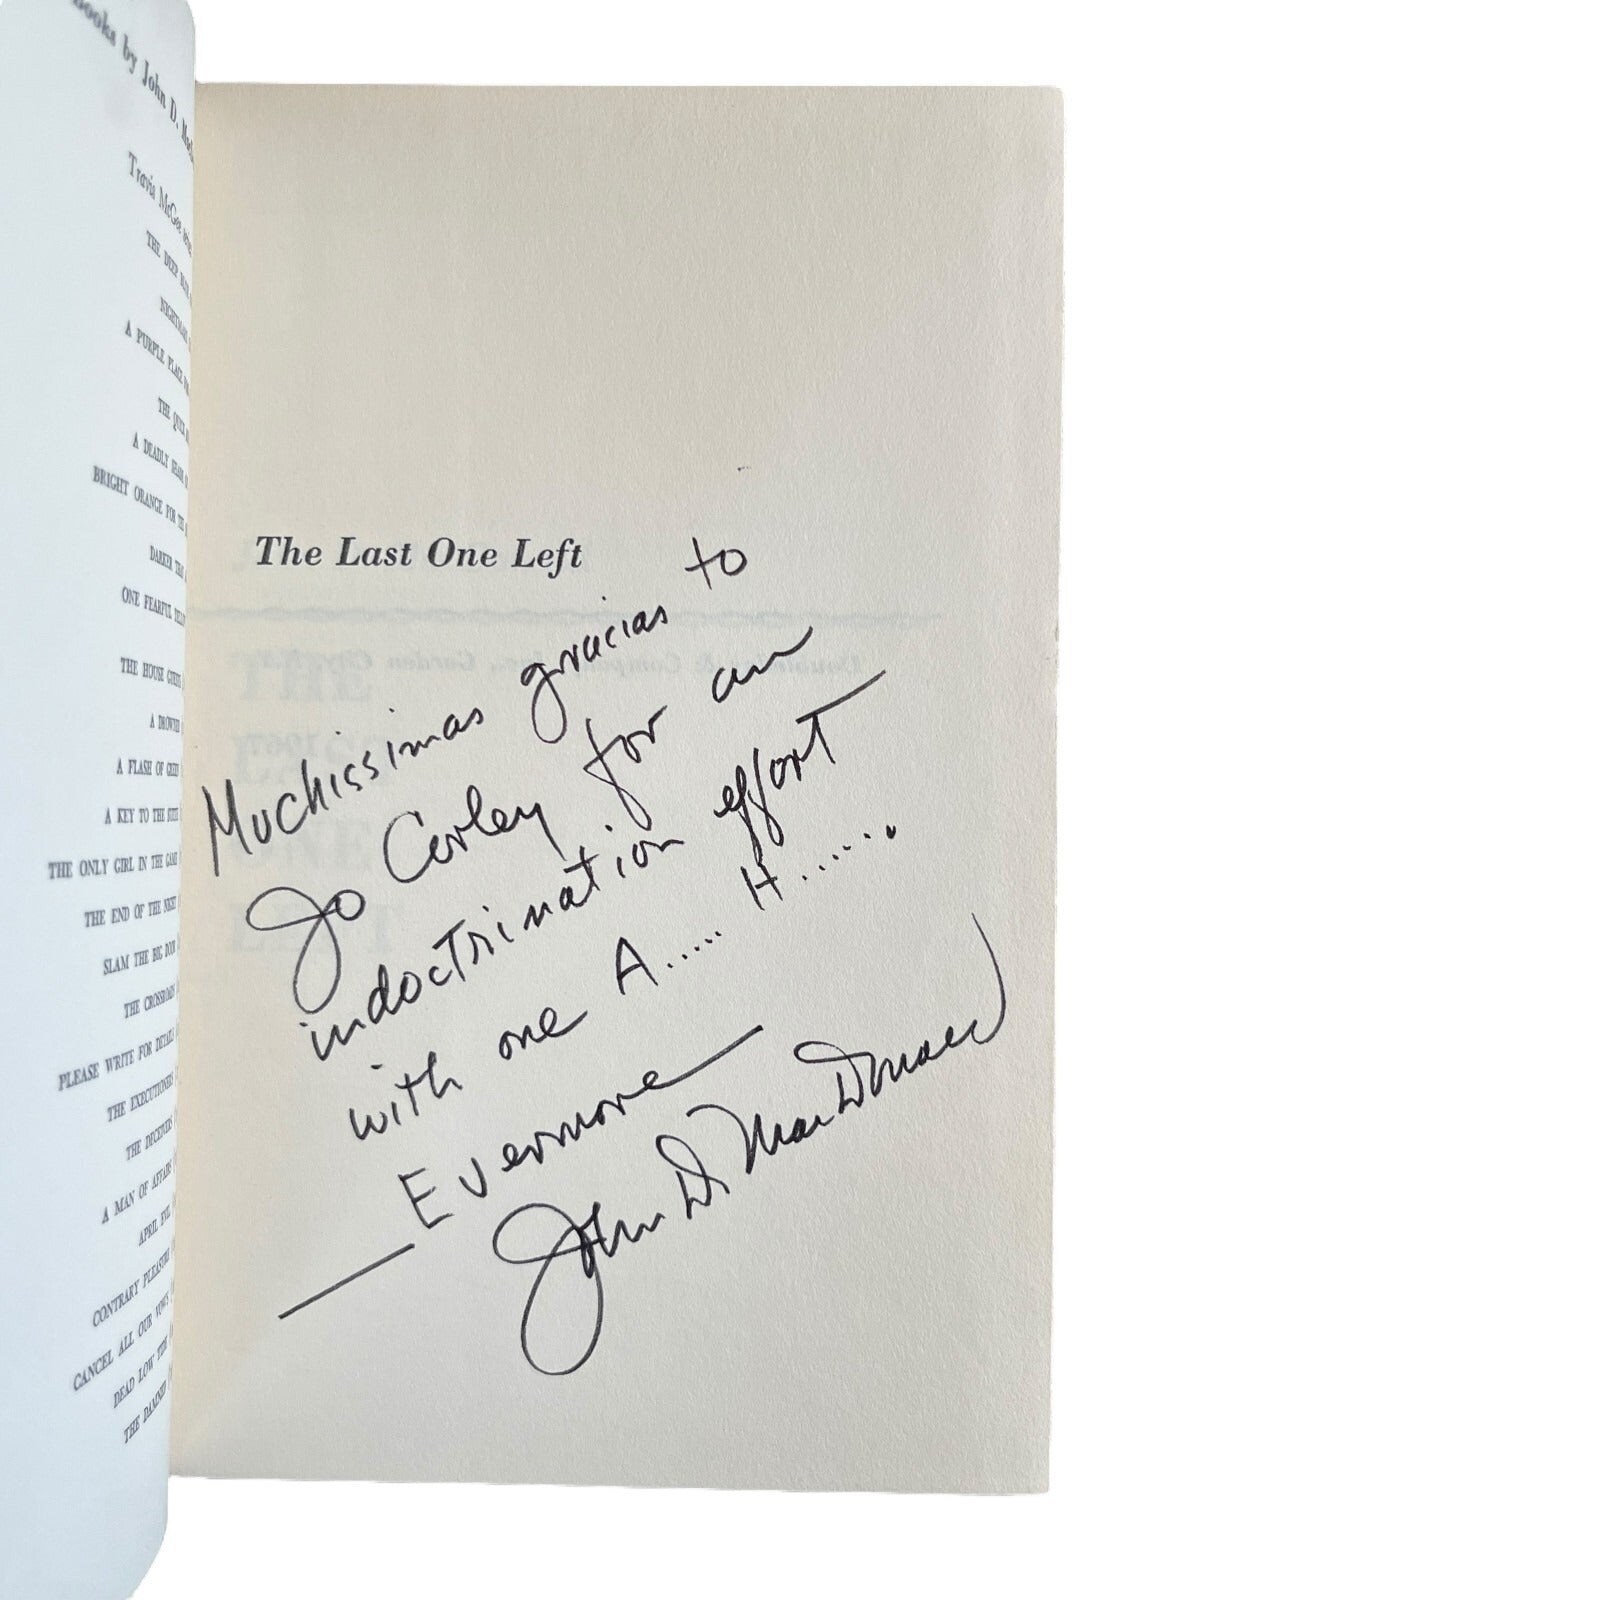 Books by John D.
Travis McGee
THE DEEP BLUE
NIGHTMARE
A PURPLE PLACE FOR
THE QUICK
A DEADLY SHADE
BRIGHT ORANGE FOR THE
DARKER THAN
ONE FEARFUL YELLOW
THE HOUSE GUESTS
A DROWNER
A FLASH OF GREEN
A KEY TO THE SUITE
THE ONLY GIRL IN THE GAME
THE END OF THE NIGHT
SLAM THE BIG DOOR
THE CROSSROADS
PLEASE WRITE FOR DETAILS
THE EXECUTIONERS
THE DECEIVERS
A MAN OF AFFAIRS
APRIL EVIL
CONTRARY PLEASURE
CANCEL ALL OUR VOWS
DEAD LOW TIDE
THE DAMNED
The Last One Left
Muchissimas gracias to
Jo Corley for an
indoctrination effort
with one A..... H.......
— Evermore —
John D. MacDonald
Doubleday & Company, Inc., Garden City, N.Y.
1967
THE
LAST
ONE
LEFT